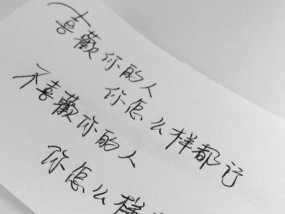 喜歡你的人
你怎么样都行
不喜歡你的人
你怎么样